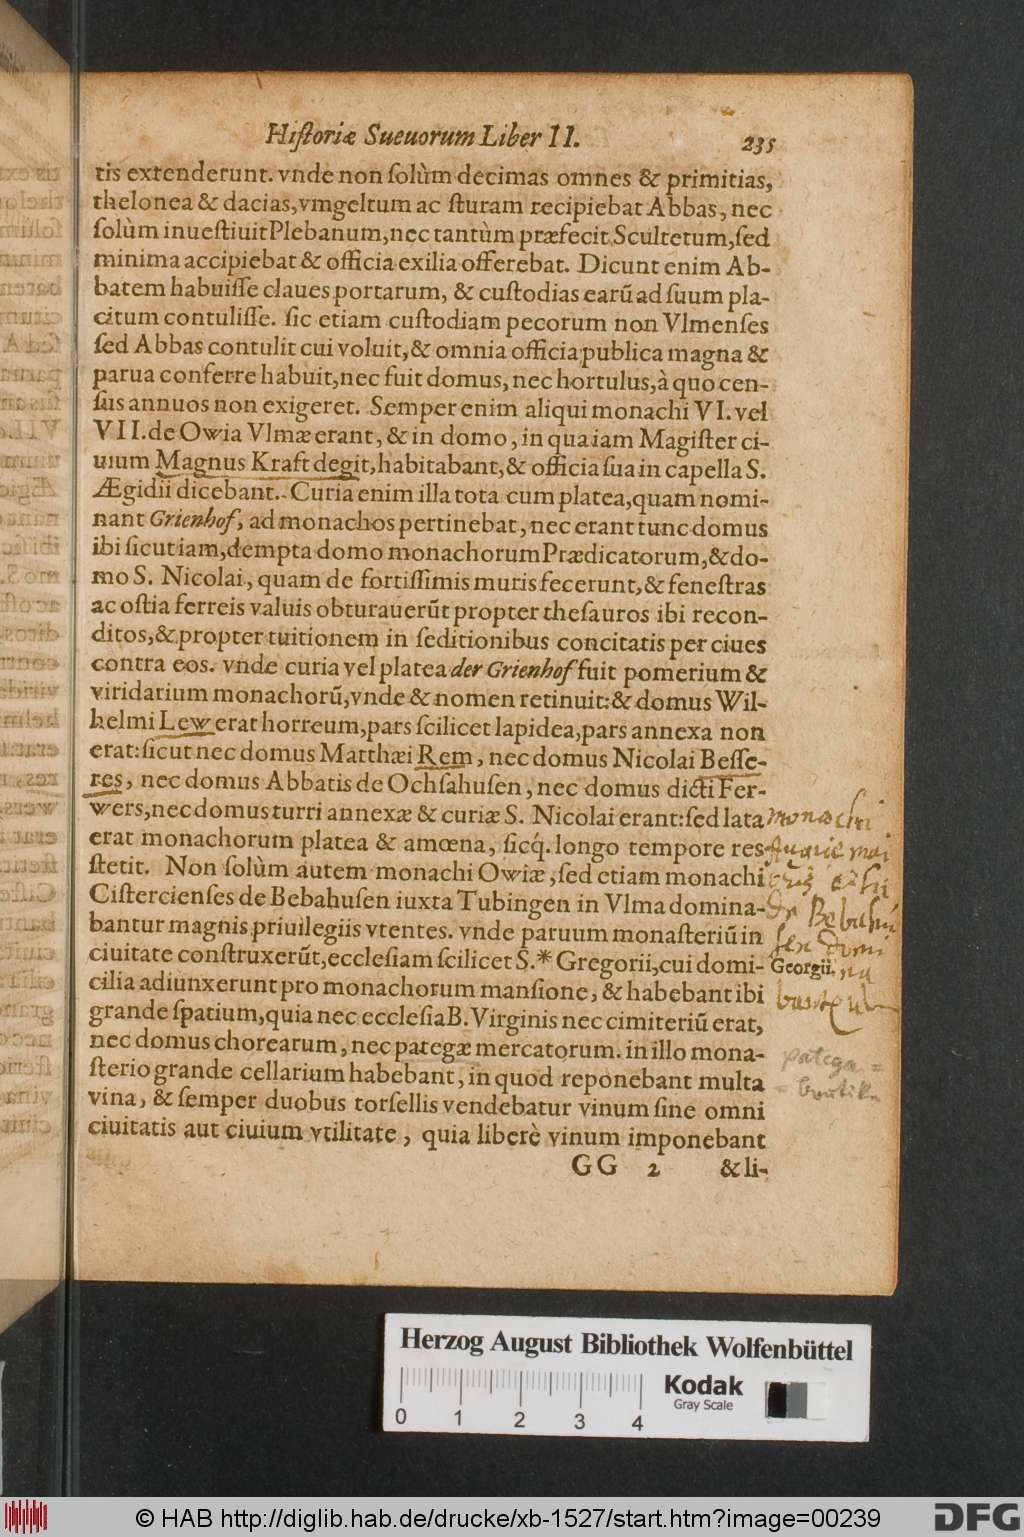 Hiſtoriæ Sueuorum Liber II. 235
tis extenderunt. vnde non ſolùm decimas omnes & primitias,
thelonea & dacias, vmgeltum ac ſturam recipiebat Abbas, nec
ſolùm inueſtiuit Plebanum, nec tantùm præfecit Scultetum, ſed
minima accipiebat & officia exilia offerebat. Dicunt enim Ab-
batem habuiſſe claues portarum, & cuſtodias earũ ad ſuum pla-
citum contuliſſe. ſic etiam cuſtodiam pecorum non Vlmenſes
ſed Abbas contulit cui voluit, & omnia officia publica magna &
parua conferre habuit, nec fuit domus, nec hortulus, à quo cen-
ſus annuos non exigeret. Semper enim aliqui monachi VI. vel
VII. de Owia Vlmæ erant, & in domo, in qua iam Magiſter ci-
uium Magnus Kraft degit, habitabant, & officia ſua in capella S.
Ægidii dicebant. Curia enim illa tota cum platea, quam nomi-
nant Grienhof, ad monachos pertinebat, nec erant tunc domus
ibi ſicut iam, dempta domo monachorum Prædicatorum, & do-
mo S. Nicolai, quam de fortiſſimis muris fecerunt, & feneſtras
ac oſtia ferreis valuis obturauerũt propter theſauros ibi recon-
ditos, & propter tuitionem in ſeditionibus concitatis per ciues
contra eos. vnde curia vel platea der Grienhof fuit pomerium &
viridarium monachorũ, vnde & nomen retinuit: & domus Wil-
helmi Lew erat horreum, pars ſcilicet lapidea, pars annexa non
erat: ſicut nec domus Matthæi Rem, nec domus Nicolai Beſſe-
res, nec domus Abbatis de Ochſahuſen, nec domus dicti Fer-
wers, nec domus turri annexæ & curiæ S. Nicolai erant: ſed lata
erat monachorum platea & amœna, ſicq́. longo tempore res
ſtetit. Non ſolùm autem monachi Owiæ, ſed etiam monachi
Ciſtercienſes de Bebahuſen iuxta Tubingen in Vlma domina-
bantur magnis priuilegiis vtentes. vnde paruum monaſteriũ in
ciuitate conſtruxerũt, eccleſiam ſcilicet S.* Gregorii, cui domi-
cilia adiunxerunt pro monachorum manſione, & habebant ibi
grande ſpatium, quia nec eccleſia B. Virginis nec cimiteriũ erat,
nec domus chorearum, nec pategæ mercatorum. in illo mona-
ſterio grande cellarium habebant, in quod reponebant multa
vina, & ſemper duobus torſellis vendebatur vinum ſine omni
ciuitatis aut ciuium vtilitate, quia liberè vinum imponebant
GG 2 & li-
monachi
Bebahu
sen domi
Georgii. na
bantur
patega =
= boutike
Herzog August Bibliothek Wolfenbüttel
0 1 2 3 4
Kodak
Gray Scale
© HAB http://diglib.hab.de/drucke/xb-1527/start.htm?image=00239
DFG